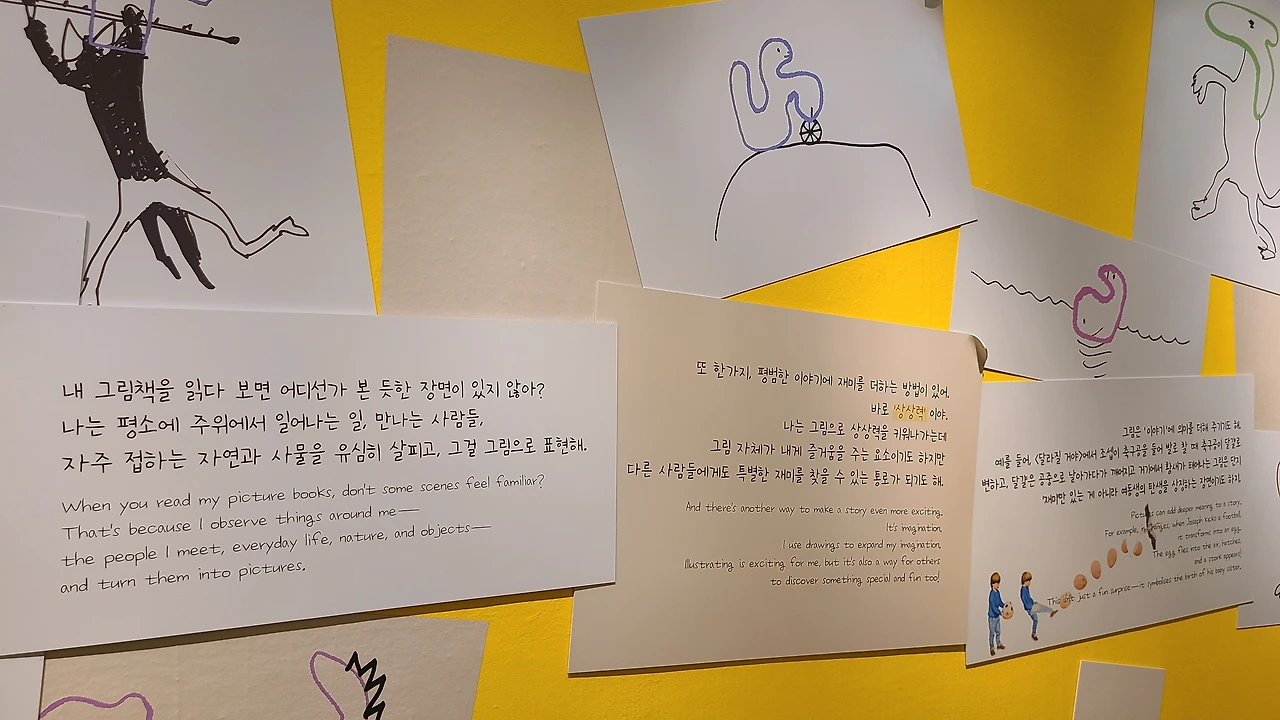 내 그림책을 읽다 보면 어디선가 본 듯한 장면이 있지 않아?
나는 평소에 주위에서 일어나는 일, 만나는 사람들,
자주 접하는 자연과 사물을 유심히 살피고, 그걸 그림으로 표현해.
When you read my picture books, don't some scenes feel familiar?
That's because I observe things around me—
the people I meet, everyday life, nature, and objects—
and turn them into pictures.
또 한가지, 평범한 이야기에 재미를 더하는 방법이 있어.
바로 '상상력' 이야.
나는 그림으로 상상력을 키워나가는데
그림 자체가 내게 즐거움을 주는 요소이기도 하지만
다른 사람들에게도 특별한 재미를 찾을 수 있는 통로가 되기도 해.
And there's another way to make a story even more exciting.
It's imagination.
I use drawings to expand my imagination.
Illustrating is exciting for me, but it's also a way for others
to discover something special and fun too!
그림은 '이야기'에 의미를 더해 주기도 해.
예를 들어, <달라질 거야>에서 조셉이 축구공을 들어 발로 찰 때 축구공이 달걀로
변하고, 달걀은 공중으로 날아가다가 깨어지고 거기에서 황새가 태어나는 그림은 단지
'재미'만 있는 게 아니라 여동생의 탄생을 상징하는 장면이기도 하지.
Pictures can add deeper meaning to a story.
For example, in Changes, when Joseph kicks a football,
it transforms into an egg.
The egg flies into the air, hatches,
and a stork appears!
This isn't just a fun surprise—it symbolises the birth of his baby sister.